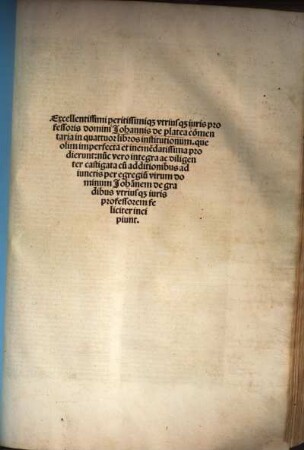 Excellentissimi peritissimiqȝ vtriusqȝ iuris pro
fessoris domini Johannis de platea cōmen
taria in quattuor libros institutionum. que
olim imperfecta et inemēdatissima pro
dierunt: nūc vero integra ac diligen
ter castigata cū additionibus ad
iunctis per egregiū virum do
minum Johānem de gra
dibus vtriusqȝ iuris
professorem fe
liciter inci
piunt.